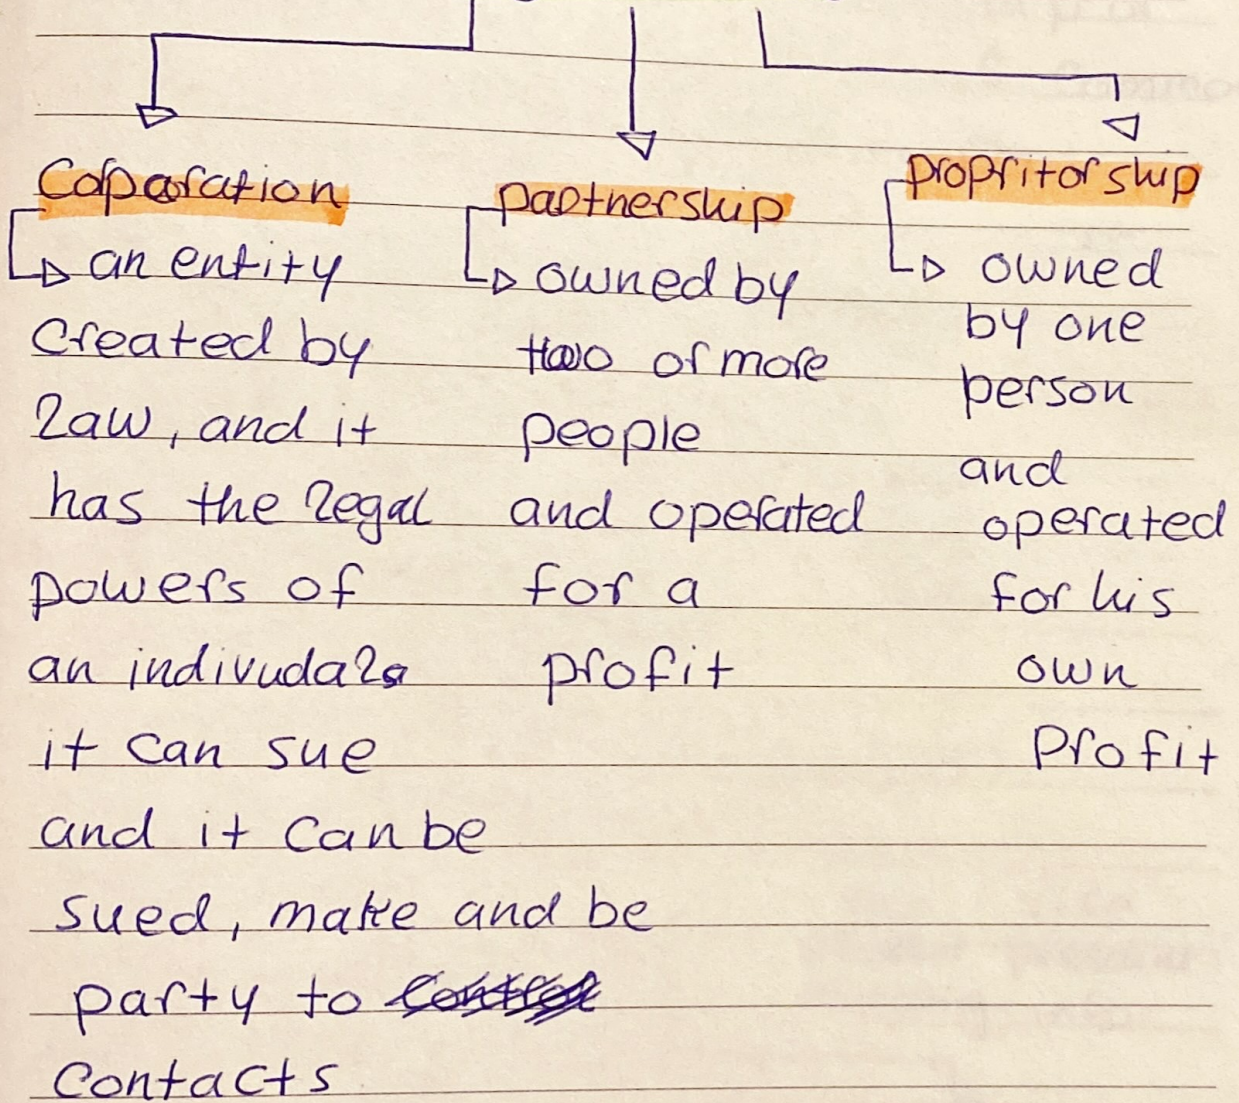 Corparation
an entity
created by
law, and it
has the legal
powers of
an indivudals
it can sue
and it can be
sued, make and be
party to
contacts
partnership
owned by
two or more
people
and operated
for a
profit
propritorship
owned
by one
person
and
operated
for his
own
profit